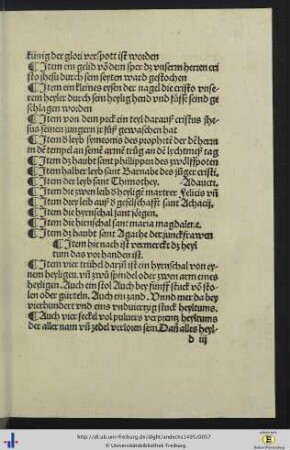 künig der glori verspott ist worden
¶ Item ein gelid võ dem sper dz vnserm herren cri
sto ihesu durch sein seyten ward gestochen
¶ Item ein kleines eysen der nagel die cristo vnse
rem heyler durch sein heylig hend vnd füsse seind ge
schlagen worden
¶ Item von dem peck ein teyl darauß cristus ihe
sus seinen iungern ir füß gewaschen hat
¶ Item dz leyb symeonis des prophetē der dē herrn
in dē tempel an seinē armē trůg an dē lychtmeß tag
¶ Item dz haubt sant philippen des zwölfboten
¶ Item halber leyb sant Barnabe des iüger cristi.
¶ Item der leyb sant Thimothey. Adaucti.
¶ Item die zwen leib d heyligē martrer Felicis vñ
¶ Item drey leib auß d geselschafft sant Achacij.
¶ Item die hyrnschal sant iörgen.
¶ Item die hirnschal sant maria magdalee.
¶ Item dz haubt sant Agathe der iunckfrawen
¶ Item hie nach ist vermerckt dz heyl
tum das vorhanden ist.
¶ Item vier trühel darin ist ein hyrnschal von ey
nem heyligen. vñ zwů spindel oder zwen arm eines
heyligen. Auch ein stol Auch bey fünff stuck võ sto
len oder gürteln. Auch ein zand. Vnnd mer da bey
vierhundert vnd eins vnduierzig stuck heyltums.
¶ Auch vier seckel vol puluers verprents heyltums
der aller nam vñ zedel verloren sein. Dañ alles heyl-
d iij
http://dl.ub.uni-freiburg.de/diglit/andechs1495/0057
© Universitätsbibliothek Freiburg